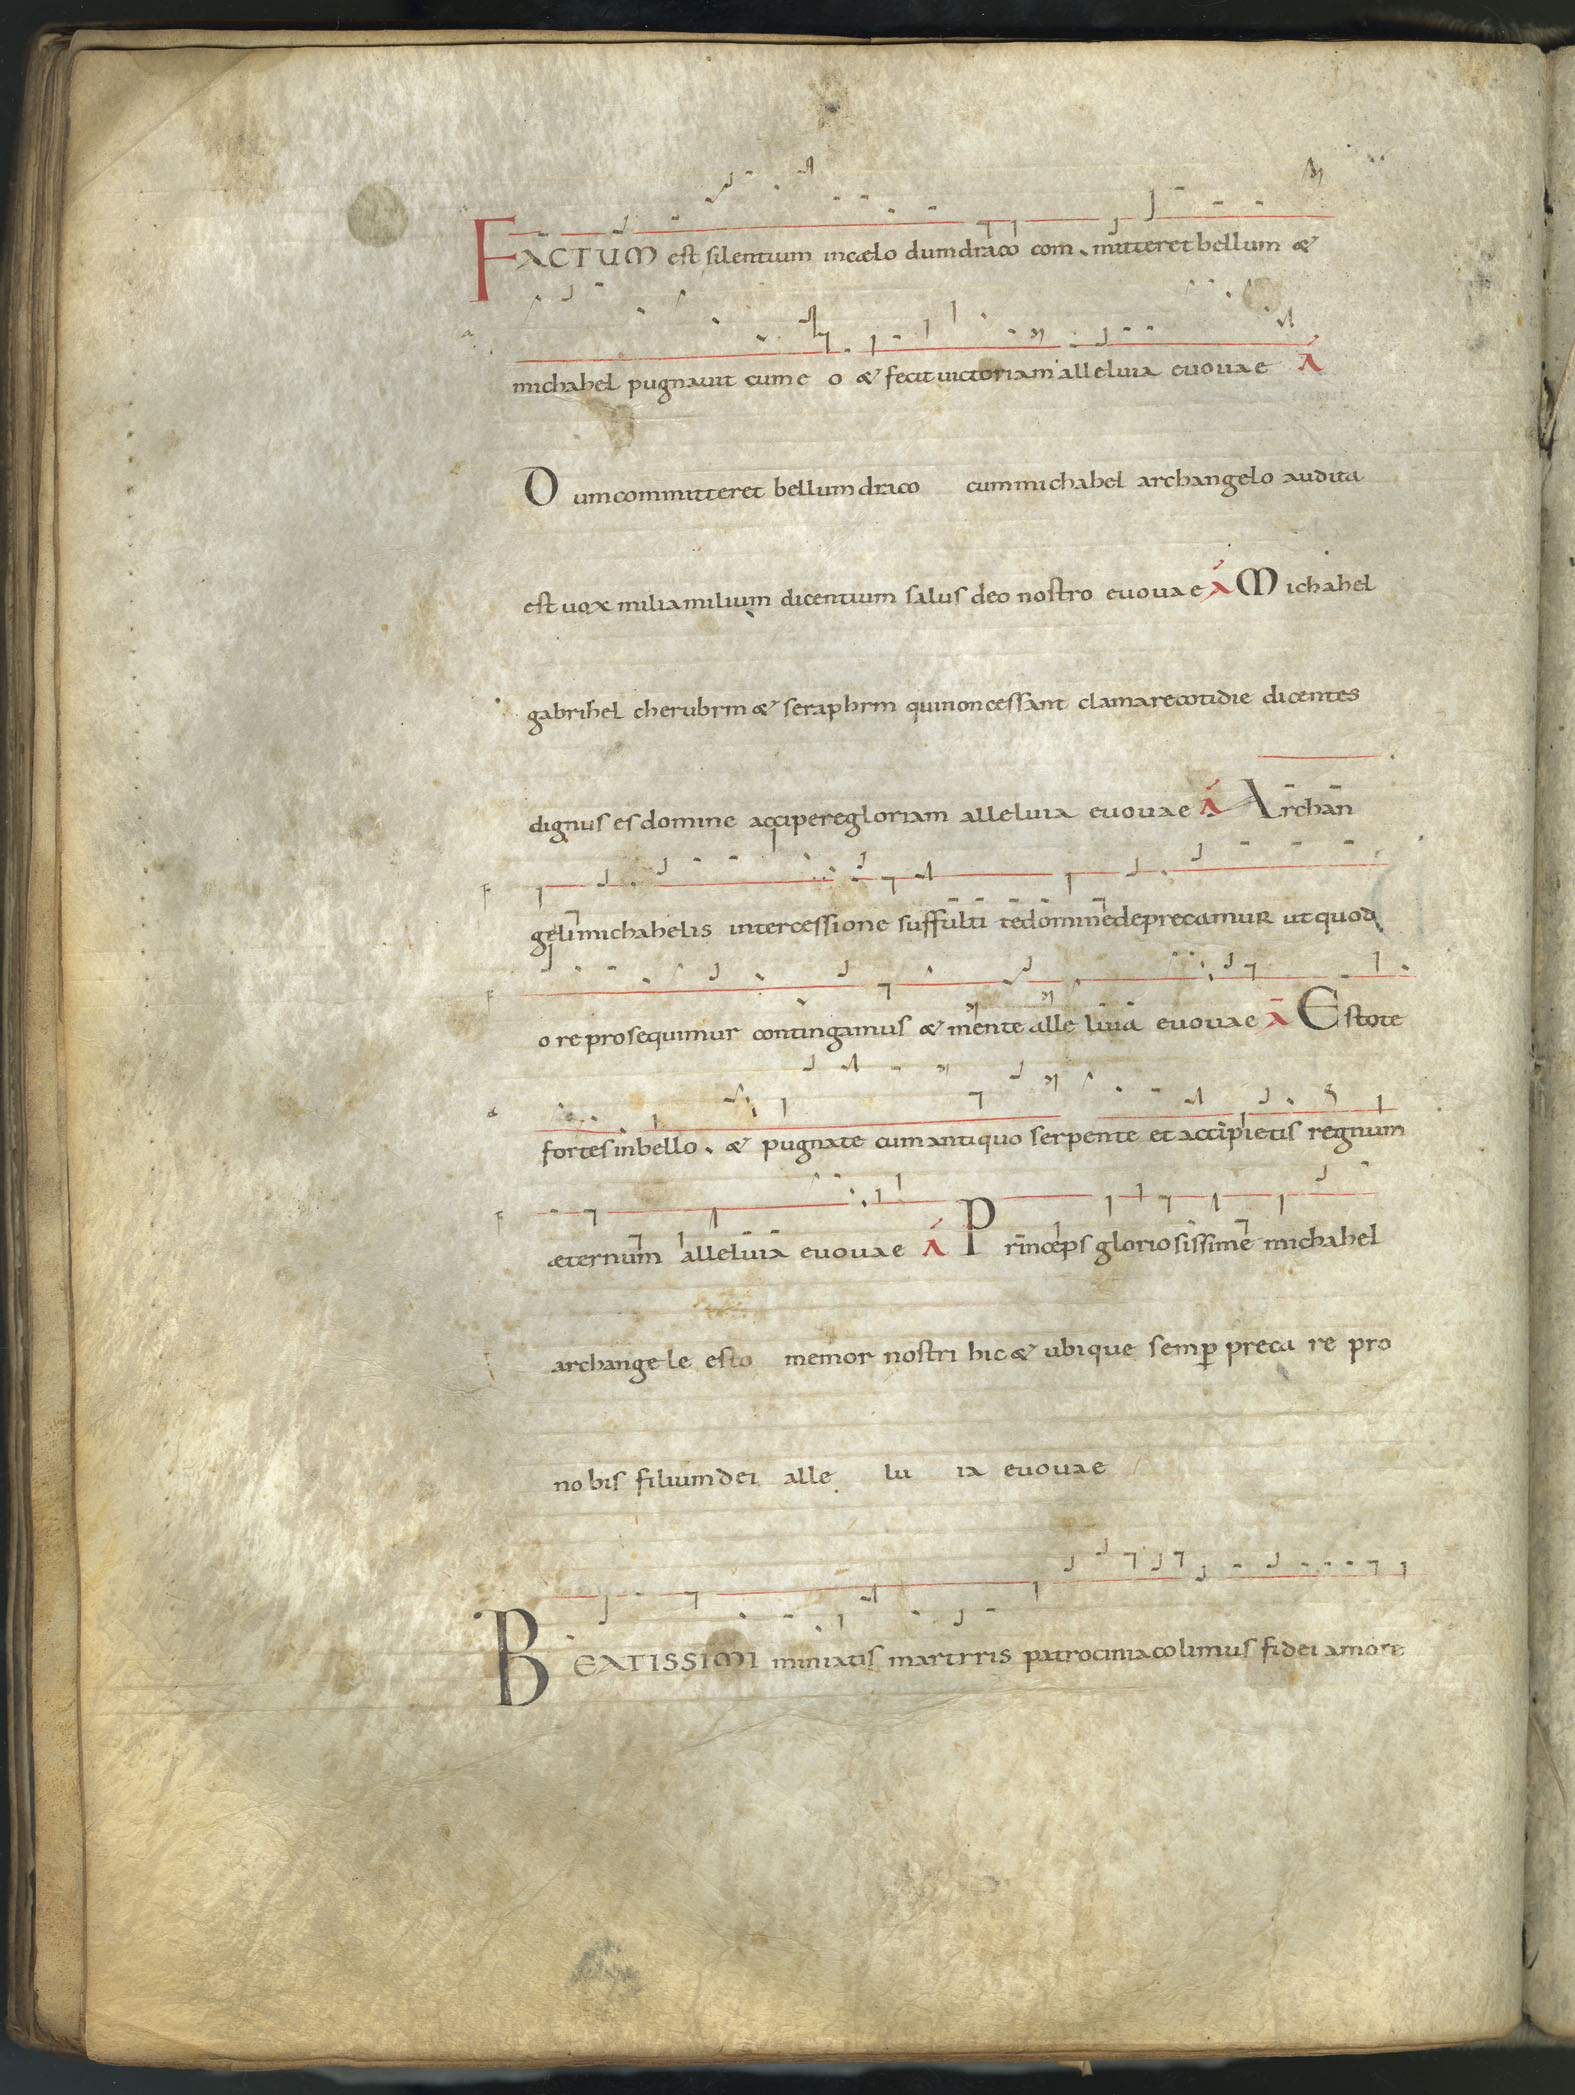 FACTUM est silentium incælo dumdraco com mitteret bellum &
michahel pugnauit cum e o & fecit uictoriam alleluia euouae A
Dumcommitteret bellumdraco cummichahel archangelo audita
est uox miliamilium dicentium salus deo nostro euouae A Michahel
gabrihel cherubym & seraphym quinoncessant clamarecotidie dicentes
dignus es domine accipere gloriam alleluia euouae A Archan
geli michahelis intercessione suffulti te domine deprecamur ut quod
ore prosequimur contingamus & mente alle luia euouae A Estote
fortes inbello. & pugnate cum antiquo serpente et accipietis regnum
æternum alleluia euouae A Princeps gloriosissime michahel
archangele esto memor nostri hic & ubique semp preca re pro
nobis filium dei alle lu ia euouae
BEATISSIMI miniatis martyris patrocinia colimus fidei amore